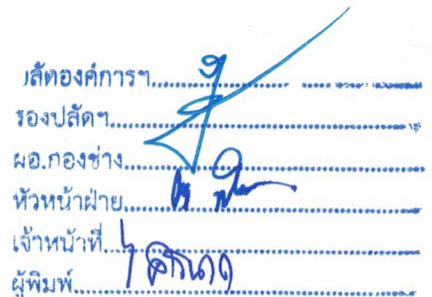 ปลัดองค์การฯ
รองปลัดฯ
ผอ.กองช่าง
หัวหน้าฝ่าย
เจ้าหน้าที่
ผู้พิมพ์